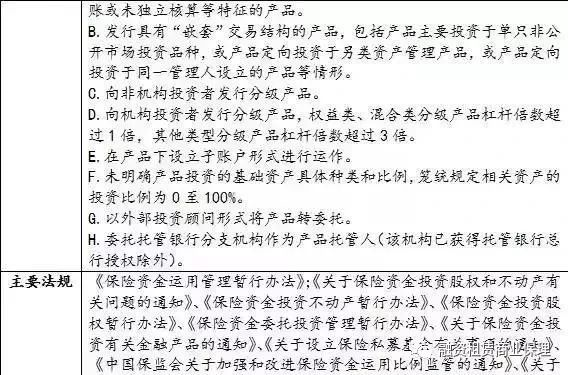 账或未独立核算等特征的产品。
B. 发行具有“嵌套”交易结构的产品，包括产品主要投资于单只非公
开市场投资品种，或产品定向投资于另类资产管理产品，或产品定向
投资于同一管理人设立的产品等情形。
C. 向非机构投资者发行分级产品。
D. 向机构投资者发行分级产品，权益类、混合类分级产品杠杆倍数超
过 1 倍，其他类型分级产品杠杆倍数超过 3 倍。
E. 在产品下设立子账户形式进行运作。
F. 未明确产品投资的基础资产具体种类和比例，笼统规定相关资产的
投资比例为 0 至 100%。
G. 以外部投资顾问形式将产品转委托。
H. 委托托管银行分支机构作为产品托管人（该机构已获得托管银行总
行授权除外）。
主要法规 《保险资金运用管理暂行办法》；《关于保险资金投资股权和不动产有
关问题的通知》、《保险资金投资不动产暂行办法》、《保险资金投资股
权暂行办法》、《保险资金委托投资管理暂行办法》、《关于保险资金投
资有关金融产品的通知》、《关于设立保险私募基金有关事项的通知》、
《中国保监会关于加强和改进保险资金运用比例监管的通知》、《关于
融资租赁商业保理